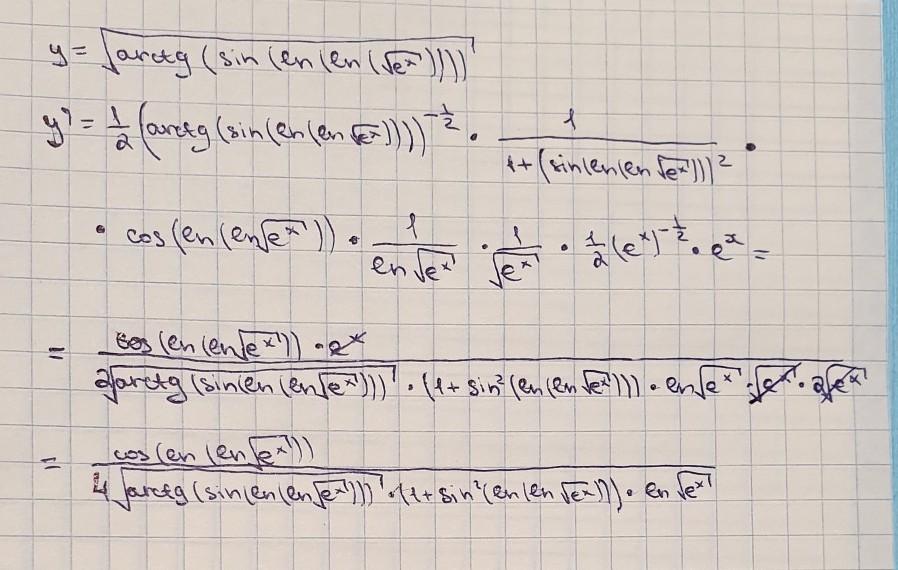 y = √(arctg (sin (ln (ln (√(eˣ))))))
y' = 1/2 (arctg (sin (ln (ln √(eˣ)))))^(-1/2) · 1/(1+(sin(ln(ln √(eˣ))))²) ·
· cos (ln (ln √(eˣ))) · 1/(ln √(eˣ)) · 1/√(eˣ) · 1/2 (eˣ)^(-1/2) · eˣ =
= (cos (ln (ln √(eˣ))) · eˣ)/(2√(arctg (sin(ln (ln √(eˣ))))) · (1 + sin² (ln (ln √(eˣ)))) · ln √(eˣ) · √(eˣ) · 2√(eˣ))
= (cos (ln (ln √(eˣ))))/(4 √(arctg (sin (ln (ln √(eˣ))))) · (1 + sin² (ln (ln √(eˣ)))) · ln √(eˣ))